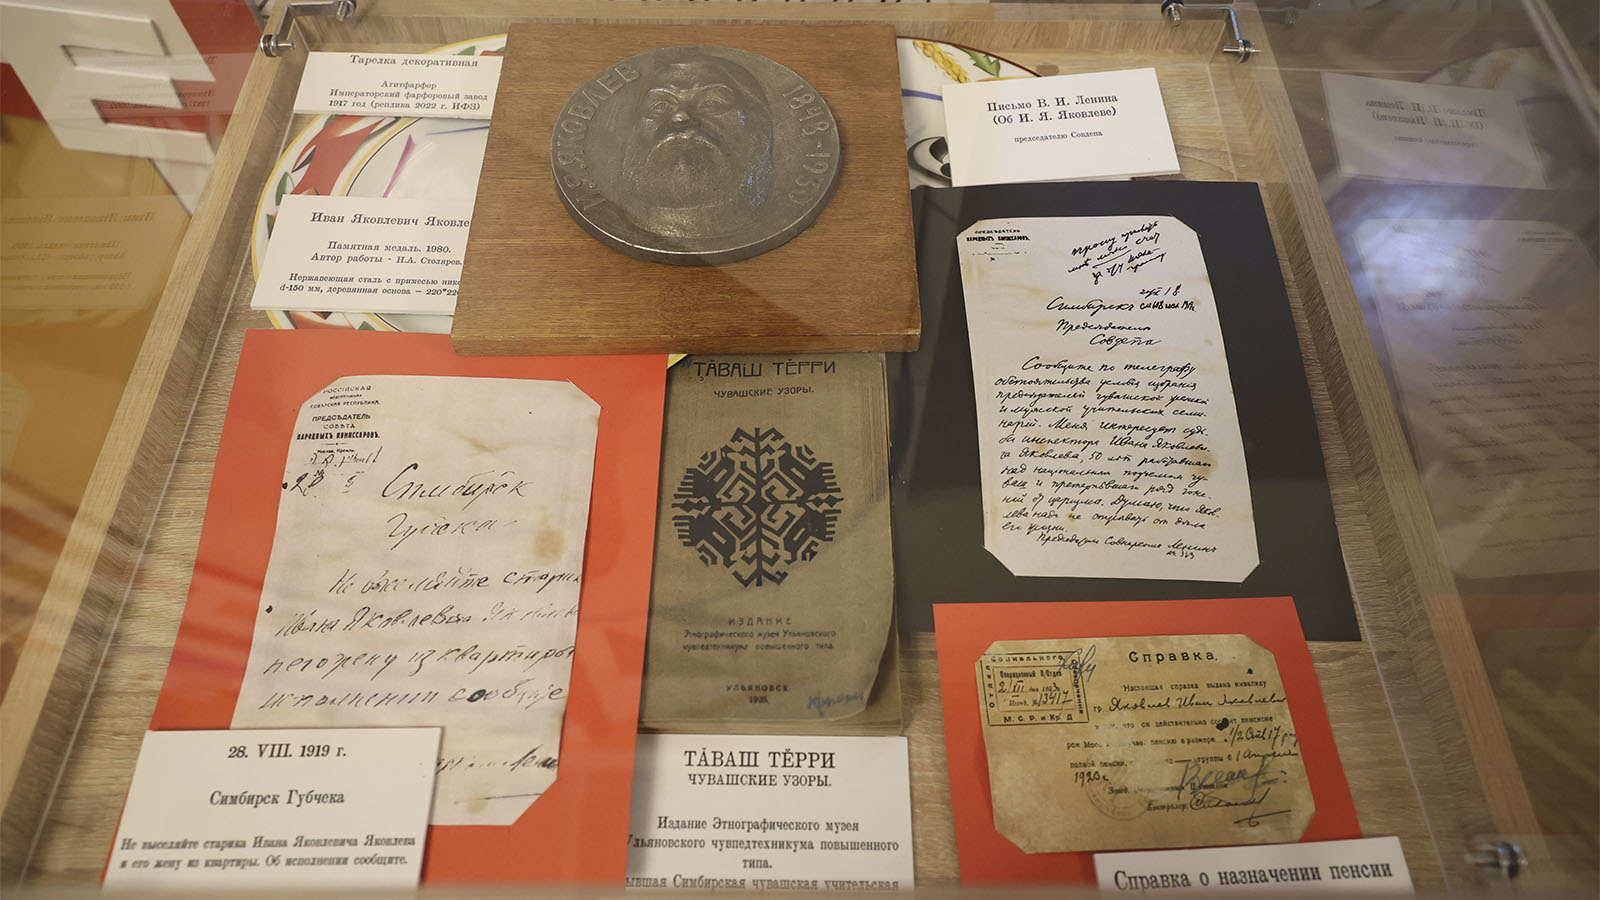 Тарелка декоративная
Агитфарфор
Императорский фарфоровый завод
1917 год (реплика 2022 г. ИФЗ)
И.Я.ЯКОВЛЕВ 1848-1930
Письмо В. И. Ленина
(Об И. Я. Яковлеве)
председателю Совдепа
Иван Яковлевич Яковле
Памятная медаль. 1980.
Автор работы - Н.А. Столяров.
Нержавеющая сталь с примесью нике
d-150 мм, деревянная основа – 220*220
ПРЕДСЕДАТЕЛЬ
НАРОДНЫХ КОМИССАРОВ.
прошу
Симбирск
Председателю
Совдепа
Сообщите по телеграфу
обстоятельства условия избрания
председателей чувашской женской
и мужской учительских семи-
нарий. Меня интересует судь-
ба инспектора Ивана Яковлеви-
ча Яковлева, 50 лет работавшего
над национальным подъемом чу-
ваш и претерпевшего ряд гоне-
ний от царизма. Думаю, что Яков-
лева надо не отрывать от дела
его жизни.
Предсовнаркома Ленин
РОССІЙСКАЯ
ФЕДЕРАТИВНАЯ
СОВѢТСКАЯ РЕСПУБЛИКА.
ПРЕДСѢДАТЕЛЬ
СОВѢТА
НАРОДНЫХЪ КОМИССАРОВЪ.
Москва, Кремль
Симбирск
Губчека
Не выселяйте старика
Ивана Яковлевича Яковлева
и его жену из квартиры. Об
исполнении сообщите
ҪӐВАШ ТӖРРИ
ЧУВАШСКИЕ УЗОРЫ.
ИЗДАНИЕ
Этнографического музея Ульяновского
чувпедтехникума повышенного типа.
УЛЬЯНОВСК
1925.
Справка.
Социального
ОТДЕЛ
М. С. Р. и Кр. Д
№ 13417
Настоящая справка выдана инвалиду
гр. Яковлев Иван Яковлевич
в том, что он действительно состоит пенсионе
ром Мос получает пенсию в размере
полной пенсии, группы с 1 апреля
1923 г.
Контролер:
28. VIII. 1919 г.
Симбирск Губчека
Не выселяйте старика Ивана Яковлевича Яковлева
и его жену из квартиры. Об исполнении сообщите.
ТӐВАШ ТӖРРИ
ЧУВАШСКИЕ УЗОРЫ.
Издание Этнографического музея
Ульяновского чувпедтехникума повышенного
типа.
бывшая Симбирская чувашская учительская
Справка о назначении пенсии